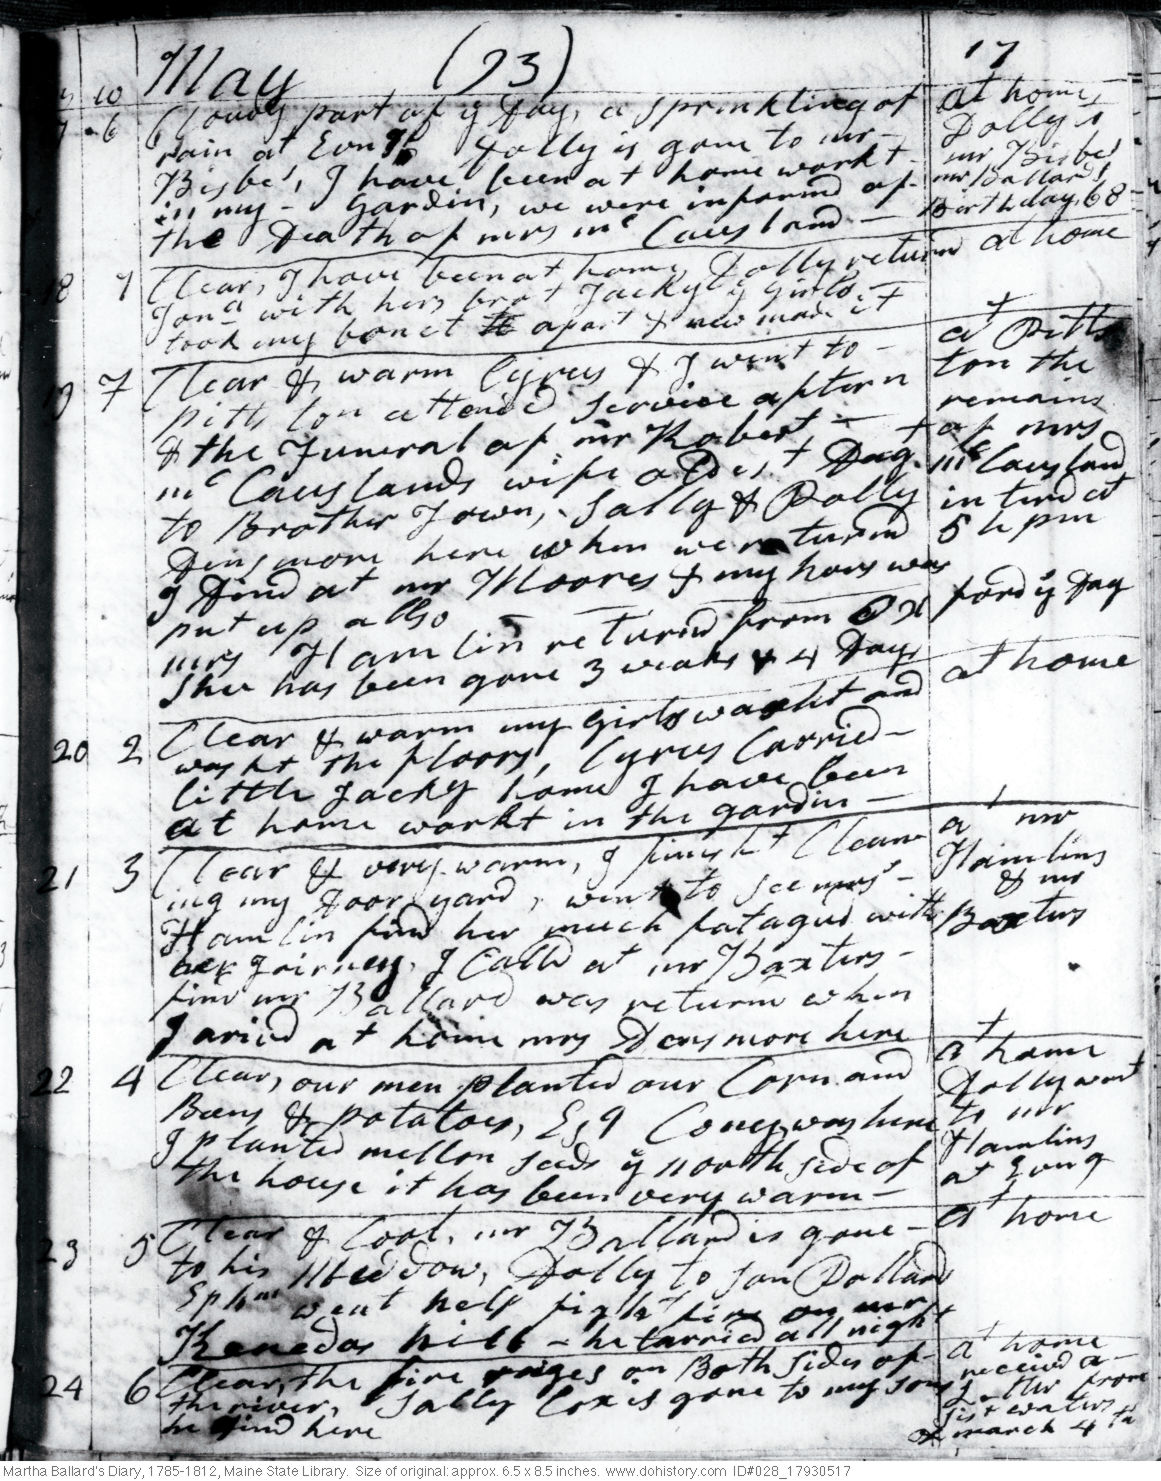 May (93) 17
10
7 - 6 Cloudy part of ye Day, a sprinkling of
rain at Evng. Dolly is gone to mr
Bisbes, I have been at home workt
in my Gardin, we were informd of
the Death of mrs mc Causland
at home,
Dolly t
mr Bisbes
mr Ballards
Birthday, 68
18 7 Clear, I have been at home, Dolly return
Jona with her, brot Jacky, ye Girls
took my bonet apart & new made it
at home
19 7 Clear & warm Cyrus & I went to
Pitts ton attend service aftern
& the Funeral of mr Robert
mc Causlands wife oldest Dag.
to Brother Town, Sally & Polly
Densmore here when we returnd
I Dind at mr Moores & my hors was
put up also
mrs Hamlin returnd from Ox
Shee has been gone 3 weaks & 4 Days
at Pitts
ton the
remains
of mrs
mc Causland
interd at
5 h pm
ford ye Day
20 2 Clear & warm my girls washt and
washt the floors, Cyrus Carried
little Jacky home I have been
at home workt in the gardin
at home
21 3 Clear & very warm, I finisht Clean
ing my Door yard, went to see mrs
Hamlin find her much fatagud with
her Joirney. I Calld at mr Baxters
find mr Ballard was returnd when
I arivd at home mrs Densmore here
at mr
Hamlins
& mr
Baxters
22 4 Clear, our men planted our Corn and
Beens & potatoes, Esq Coney was here
I planted mellon seeds ye north side of
the house it has been very warm
at home
Dolly went
to mr
Hamlins
at Evng
23 5 Clear & Cool. mr Ballard is gone
to his Meddow, Dolly to Jon Pollard
Ephm went help fight fire on mr
Kenedas hill - he tarried all night
at home
24 6 Clear, the fire rages on Both sides of
the river, Sally Cox is gone to my sons
he Dind here
at home
receivd a
from
Sist waters
of march 4 th
Martha Ballard's Diary, 1785-1812, Maine State Library. Size of original: approx. 6.5 x 8.5 inches. www.dohistory.com ID#028_17930517